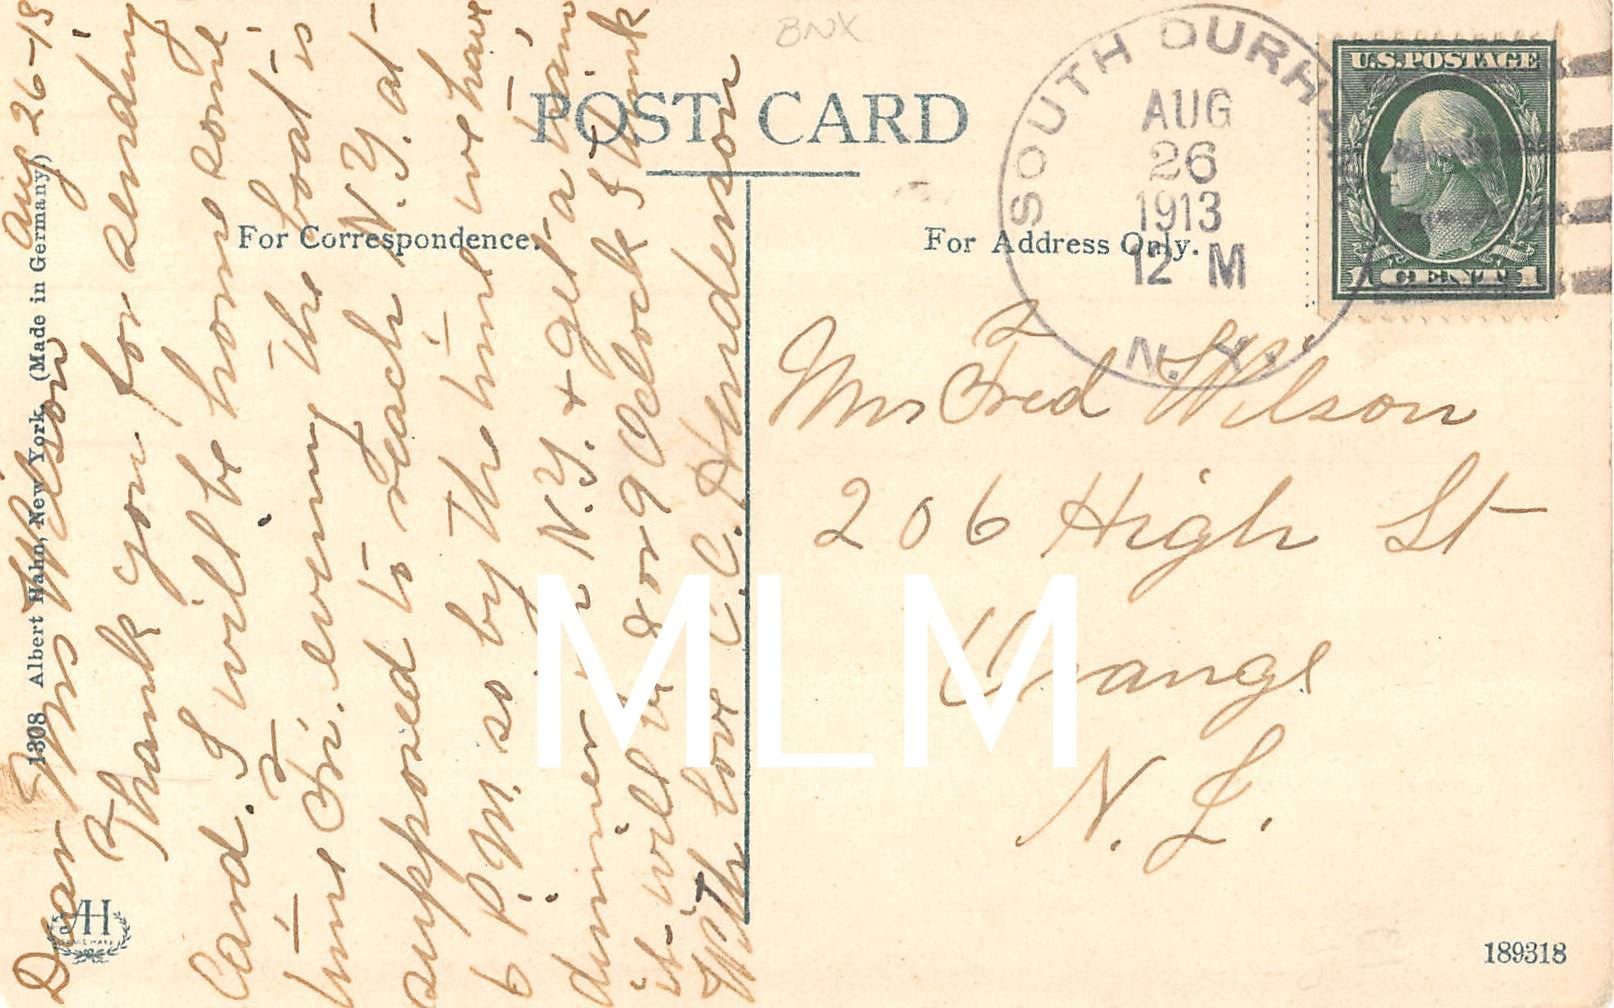 BNX
POST CARD
For Correspondence.
For Address Only.
SOUTH DURHAM
AUG
26
1913
12 M
N.Y.
U.S. POSTAGE
1 CENT 1
Aug 26-13
Dear Mrs Wilson
Thank you for sending
Card. I will be home some
time Fri. evening the boat is
supposed to reach N.Y. at
6 P.M. so by the time we have
dinner in N.Y. + get a train
it will be 8 or 9 Oclock I think
With love C. C. Henderson
Mrs Fred Wilson
206 High St
Orange
N. J.
1308 Albert Hahn, New York. (Made in Germany)
AH
189318
MLM